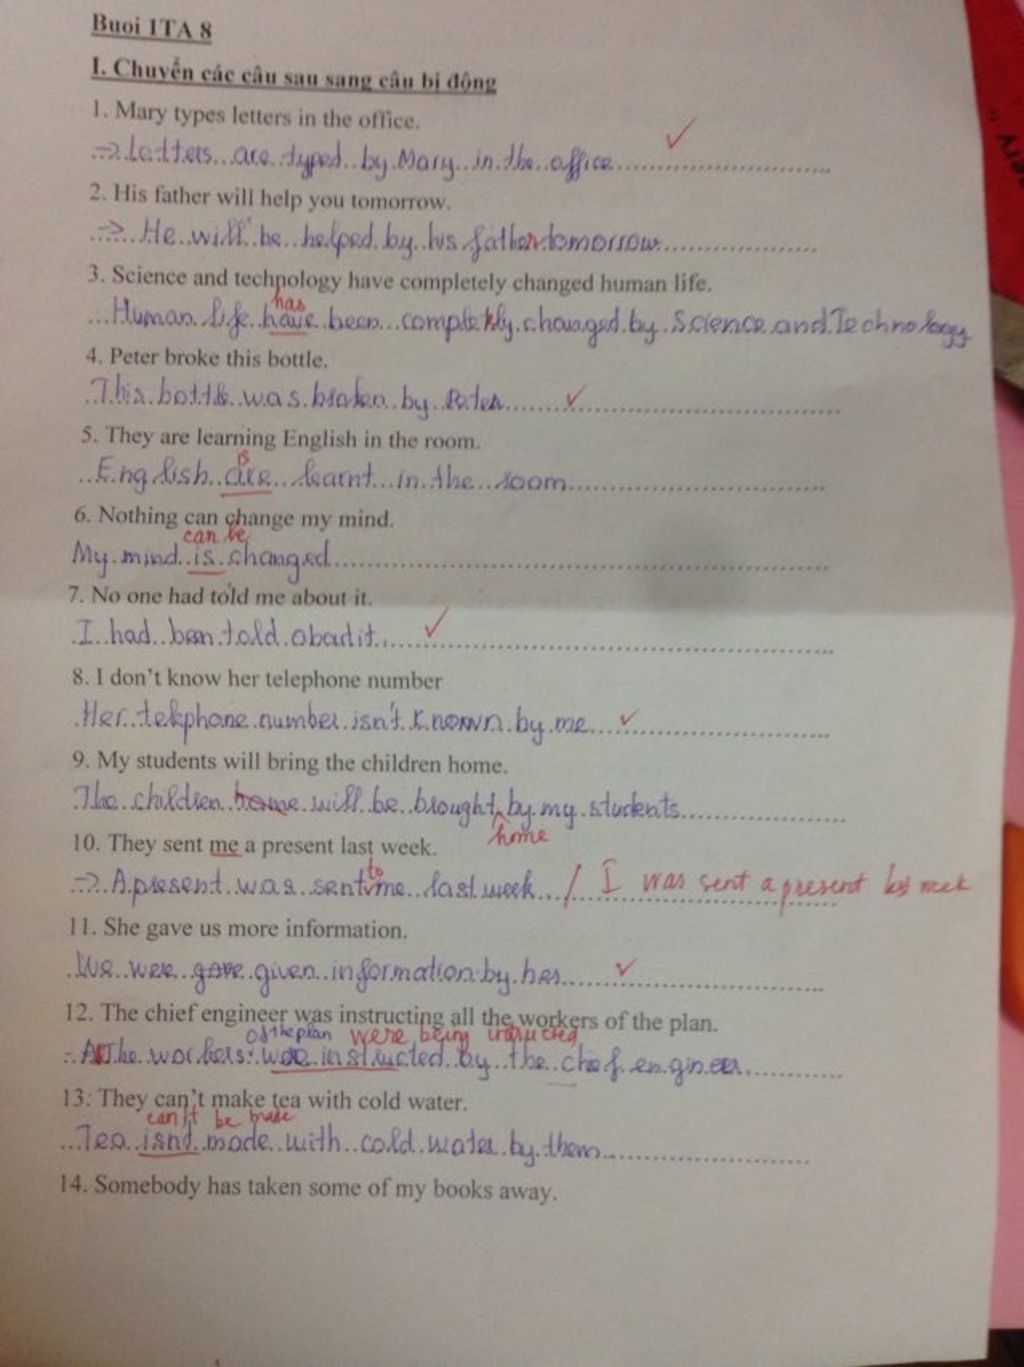 Buoi 1TA 8
I. Chuyển các câu sau sang câu bị động
1. Mary types letters in the office.
→ Letters are typed by Mary in the office
2. His father will help you tomorrow.
→ He will be helped by his father tomorrow
3. Science and technology have completely changed human life.
has
Human life have been completely changed by Science and Technology
4. Peter broke this bottle.
This bottle was broken by Peter
5. They are learning English in the room.
is
English are learnt in the room
6. Nothing can change my mind.
can be
My mind is changed
7. No one had told me about it.
I had been told about it
8. I don't know her telephone number
Her telephone number isn't known by me
9. My students will bring the children home.
The children home will be brought by my students
home
10. They sent me a present last week.
to
→ A present was sent me last week / I was sent a present last week
11. She gave us more information.
We were gave given information by her
12. The chief engineer was instructing all the workers of the plan.
of the plan were being instructed
The workers was instructed by the chief engineer
13. They can't make tea with cold water.
can't be made
Tea isn't made with cold water by them
14. Somebody has taken some of my books away.